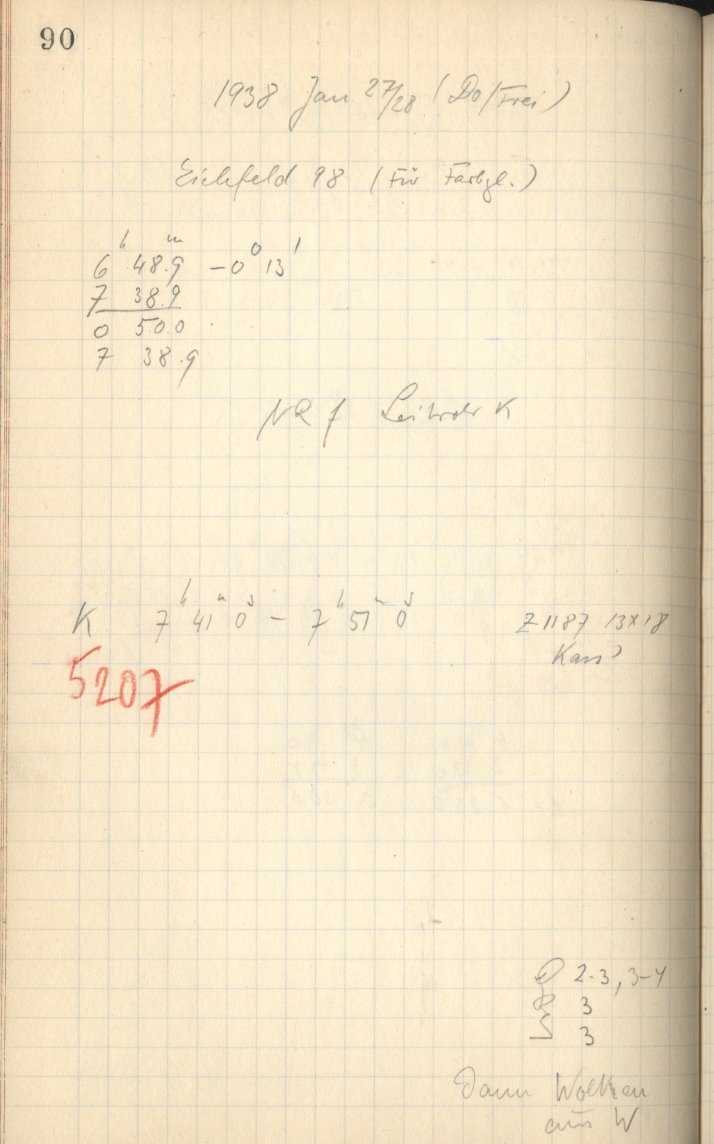 90
1938 Jan 27/28 (Do/Frei)
Eichfeld 98 (Für Farbgl.)
6ʰ 48.9ᵐ -0° 13'
7 38.9
0 50.0
7 38.9
f Leitrohr K
K 7ʰ 41ᵐ 0ˢ - 7ʰ 51ᵐ 0ˢ Z 1187 13x18
5207
D 2-3, 3-4
R 3
S 3
Dann Wolken
aus W